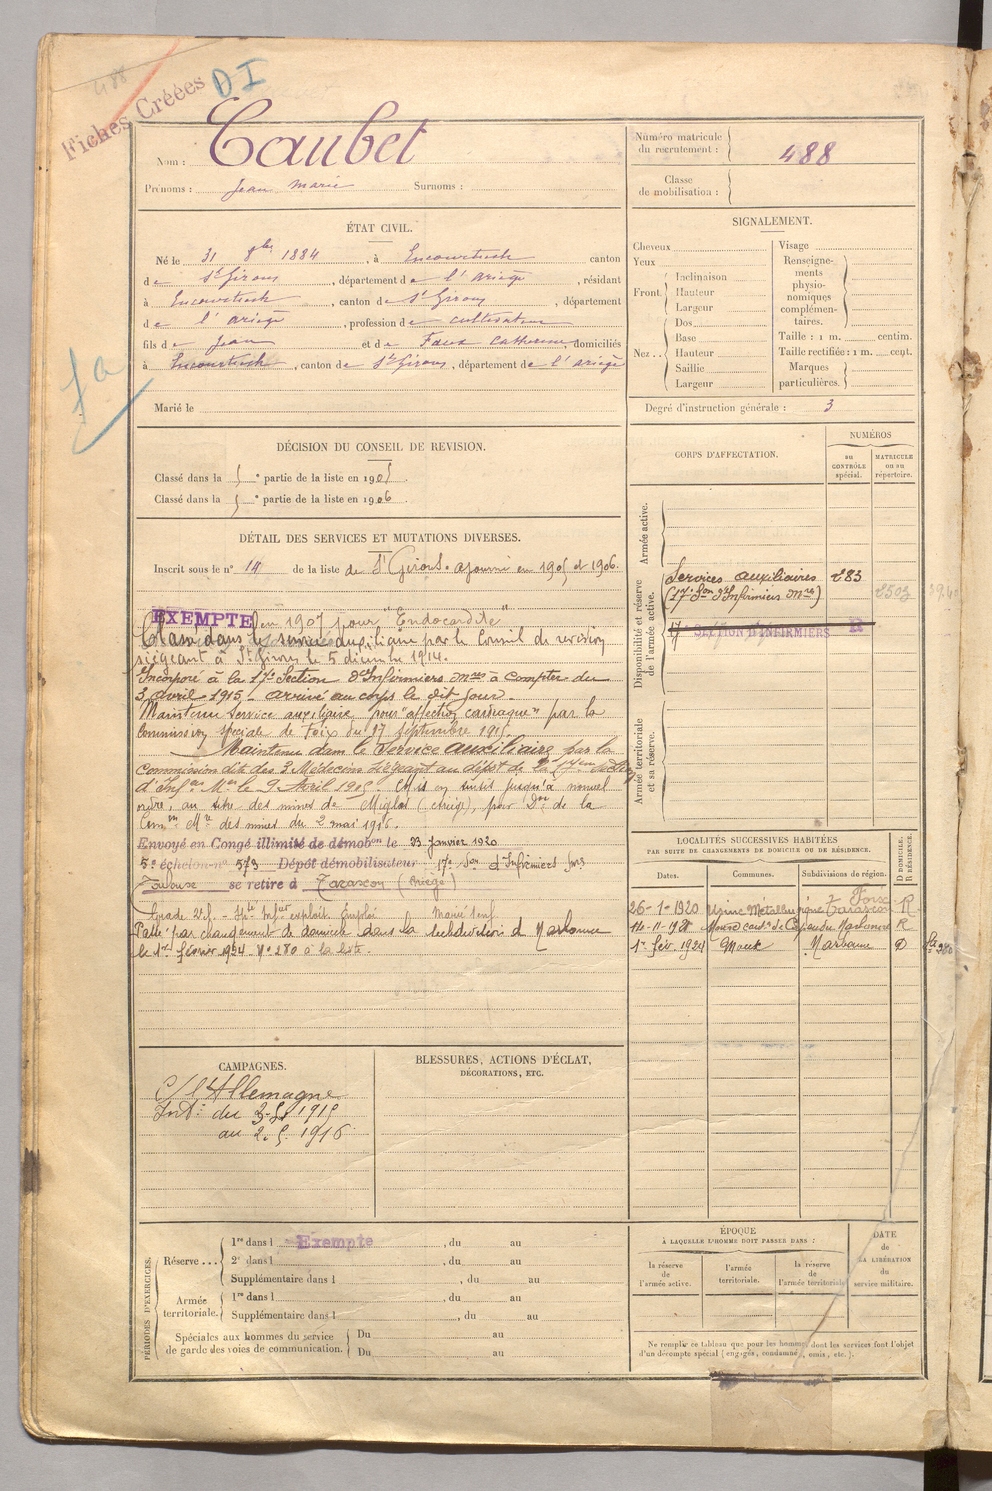 488
Fiches Créées
DI
Nom : Caubet
Prénoms : Jean Marie Surnoms :
Numéro matricule
du recrutement : 488
Classe
de mobilisation :
ÉTAT CIVIL.
Né le 31 8bre 1884, à Encourtiech canton
de St Girons, département de l'Ariège, résidant
à Encourtiech, canton de St Girons, département
de l'Ariège, profession de cultivateur
fils de Jean et de Faux Catherine, domiciliés
à Encourtiech, canton de St Girons, département de l'Ariège
Marié le
fa
SIGNALEMENT.
Cheveux
Yeux
Front. Inclinaison
Hauteur
Largeur
Nez.. Dos
Base
Hauteur
Saillie
Largeur
Visage
Renseigne-
ments
physio-
nomiques
complémen-
taires.
Taille : 1 m. centim.
Taille rectifiée : 1 m. cent.
Marques
particulières.
Degré d'instruction générale : 3
DÉCISION DU CONSEIL DE REVISION.
Classé dans la 5e partie de la liste en 1905.
Classé dans la 5e partie de la liste en 1906.
DÉTAIL DES SERVICES ET MUTATIONS DIVERSES.
Inscrit sous le n° 14 de la liste de St Girons. ajourné en 1905 et 1906.
EXEMPTÉ en 1907 pour "Endocardite"
Classé dans le service auxiliaire par le Conseil de revision
siégeant à St Girons le 5 décembre 1914.
Incorporé à la 17e Section d'Infirmiers mres à compter du
3 avril 1915 - arrivé au corps le dit jour.
Maintenu Service auxiliaire pour "affection cardiaque" par la
Commission spéciale de Foix du 27 septembre 1915.
Maintenu dans le Service auxiliaire par la
Commission dite des 3 Médecins siégeant au dépôt de la 17ème Section
d'Infres Mres le 9 Avril 1916. Mis en sursis jusqu'à nouvel
ordre, au titre des mines de Miglos (Ariège), par Don de la
Comon Mre des mines du 2 mai 1916.
Envoyé en Congé illimité de démobon le 23 Janvier 1920
5e échelon no 573 Dépôt démobilisateur 17e Son d'Infirmiers mres
Toulouse se retire à Tarascon (Ariège)
Passé par changement de domicile dans la subdivision de Narbonne
le 1er février 1924. No 280 à la liste.
CORPS D'AFFECTATION.
NUMÉROS
au
CONTRÔLE
spécial.
MATRICULE
ou au
répertoire.
Armée active.
Disponibilité et réserve
de l'armée active.
Services auxiliaires 283
(17e Son d'Infirmiers mres)
17e SECTION D'INFIRMIERS R
Armée territoriale
et sa réserve.
LOCALITÉS SUCCESSIVES HABITÉES
PAR SUITE DE CHANGEMENTS DE DOMICILE OU DE RÉSIDENCE.
Dates. Communes. Subdivisions de région. D DOMICILE. R RÉSIDENCE.
Foix
26-1-1920 Usine Métallurgique Tarascon R
1er fév. 1924 Moux Narbonne D
CAMPAGNES.
C/ l'Allemagne
Intr: du 3-4-1915
au 2.5.1916
BLESSURES, ACTIONS D'ÉCLAT,
DÉCORATIONS, ETC.
PÉRIODES D'EXERCICES.
Réserve... 1re dans l Exempté, du au
2e dans l, du au
Supplémentaire dans l, du au
Armée
territoriale. 1re dans l, du au
Supplémentaire dans l, du au
Spéciales aux hommes du service
de garde des voies de communication. Du au
Du au
ÉPOQUE
À LAQUELLE L'HOMME DOIT PASSER DANS :
la réserve
de
l'armée active.
l'armée
territoriale.
la réserve
de
l'armée territoriale
DATE
de
LA LIBÉRATION
du
service militaire.
Ne remplir ce tableau que pour les hommes dont les services font l'objet
d'un décompte spécial (engagés, condamnés, omis, etc.).